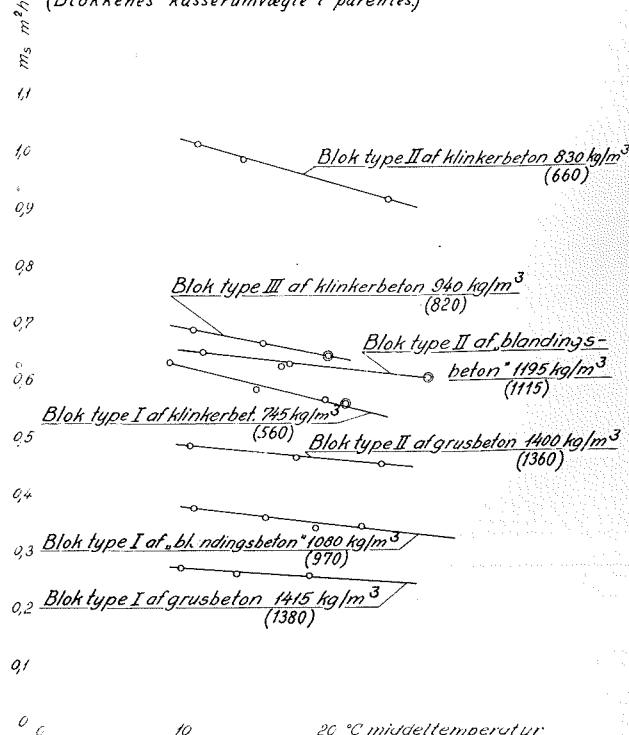 (Blokkenes kasserumvægte i parentes.)
m₅ m²h
1,1
1,0
Blok type II af klinkerbeton 830 kg/m³
(660)
0,9
0,8
Blok type III af klinkerbeton 940 kg/m³
(820)
0,7
Blok type II af „blandings-
beton" 1195 kg/m³
(1115)
0,6
Blok type I af klinkerbet. 745 kg/m³
(560)
0,5
Blok type II af grusbeton 1400 kg/m³
(1360)
0,4
Blok type I af „bl.ndingsbeton" 1080 kg/m³
(970)
0,3
Blok type I af grusbeton 1415 kg/m³
(1380)
0,2
0,1
0
0 10 20 °C middeltemperatur